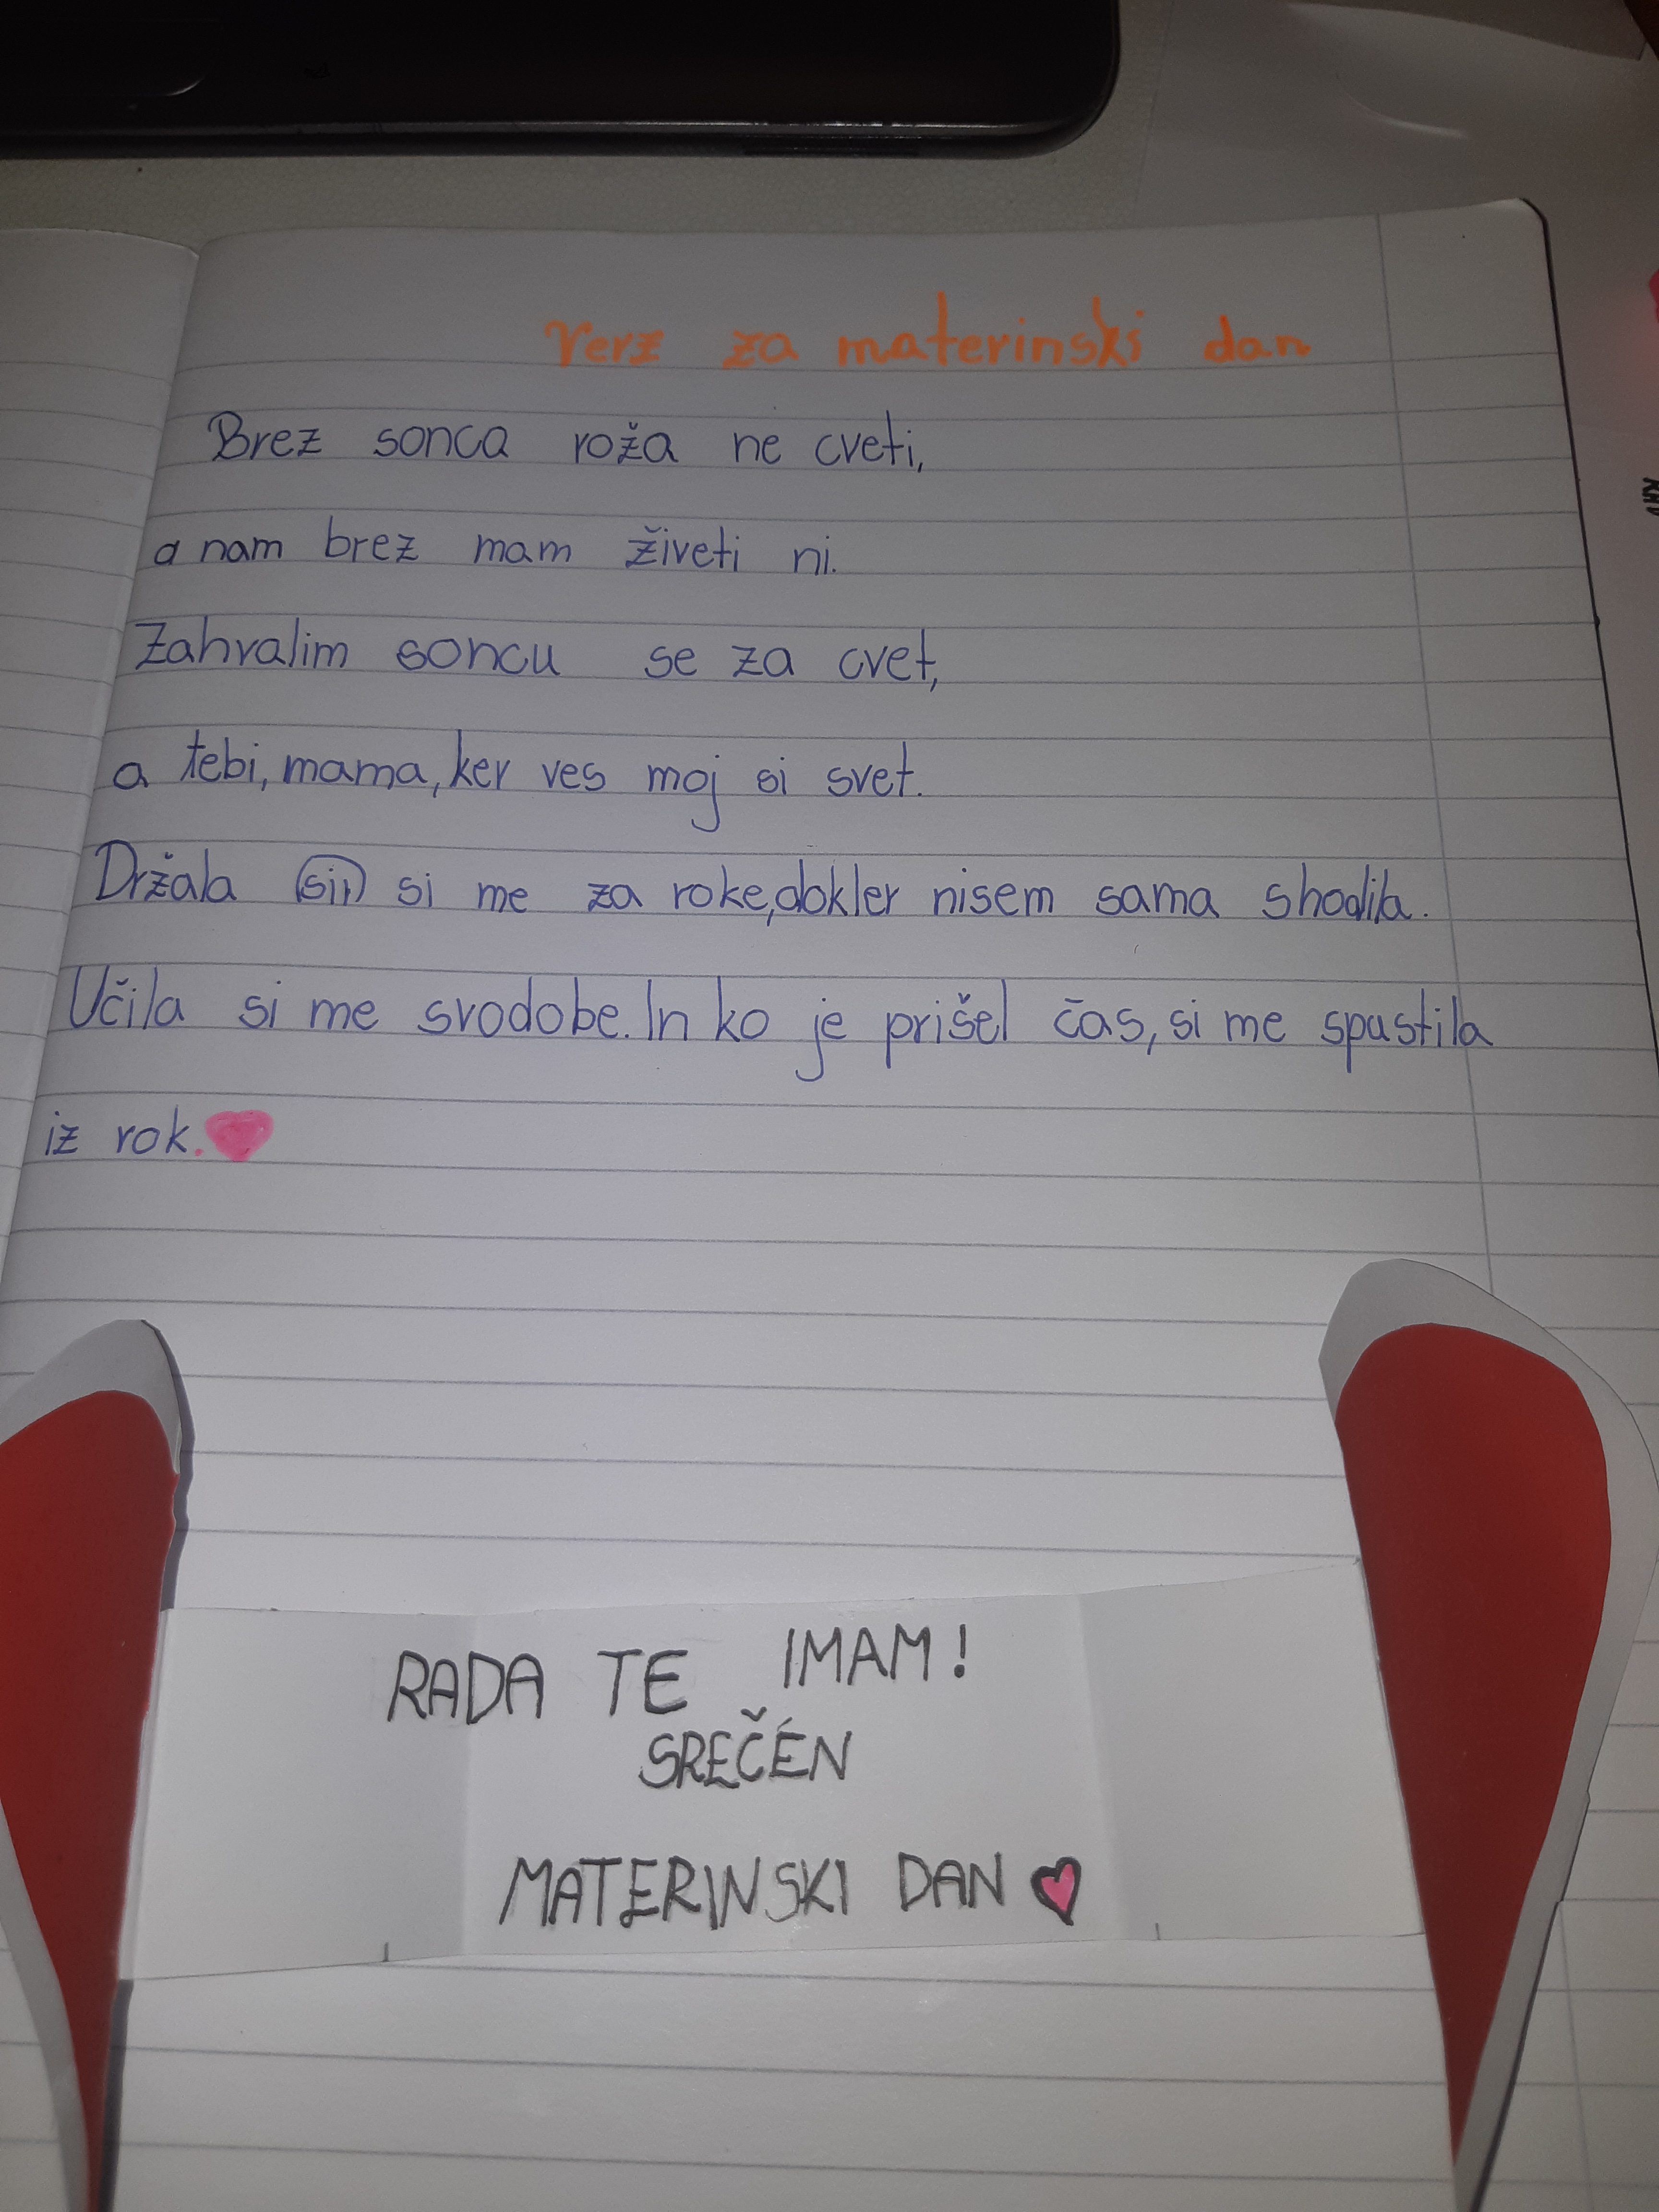 Verz za materinski dan
Brez sonca roža ne cveti,
a nam brez mam živeti ni.
Zahvalim soncu se za cvet,
a tebi, mama, ker ves moj si svet.
Držala (sij) si me za roke, dokler nisem sama shodila.
Učila si me svodobe. In ko je prišel čas, si me spustila
iz rok.
RADA TE IMAM!
SREČEN
MATERINSKI DAN